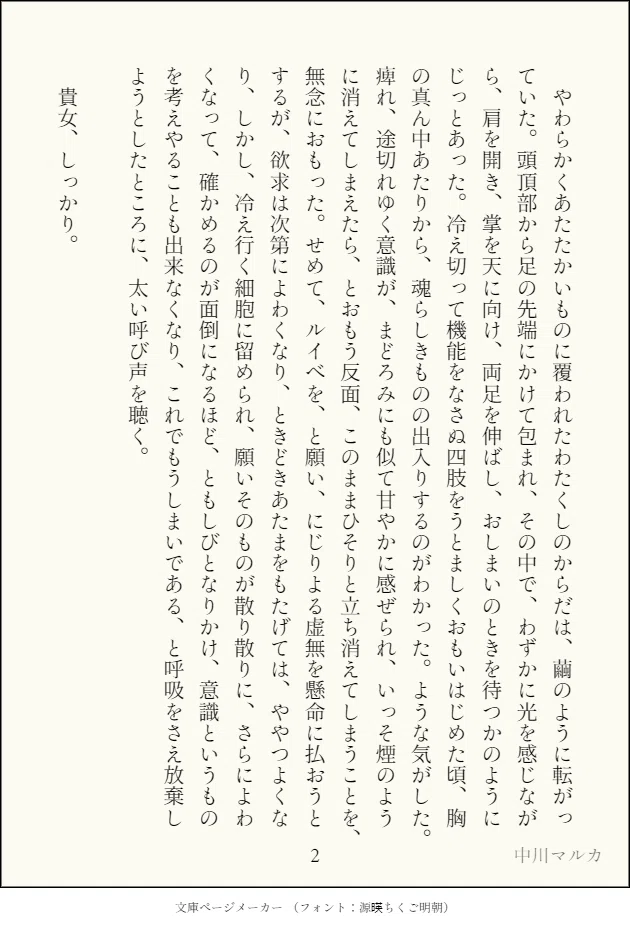 やわらかくあたたかいものに覆われたわたくしのからだは、繭のように転がっ
ていた。頭頂部から足の先端にかけて包まれ、その中で、わずかに光を感じなが
ら、肩を開き、掌を天に向け、両足を伸ばし、おしまいのときを待つかのように
じっとあった。冷え切って機能をなさぬ四肢をうとましくおもいはじめた頃、胸
の真ん中あたりから、魂らしきものの出入りするのがわかった。ような気がした。
痺れ、途切れゆく意識が、まどろみにも似て甘やかに感ぜられ、いっそ煙のよう
に消えてしまえたら、とおもう反面、このままひそりと立ち消えてしまうことを、
無念におもった。せめて、ルイベを、と願い、にじりよる虚無を懸命に払おうと
するが、欲求は次第によわくなり、ときどきあたまをもたげては、ややつよくな
り、しかし、冷え行く細胞に留められ、願いそのものが散り散りに、さらによわ
くなって、確かめるのが面倒になるほど、ともしびとなりかけ、意識というもの
を考えやることも出来なくなり、これでもうしまいである、と呼吸をさえ放棄し
ようとしたところに、太い呼び声を聴く。
　貴女、しっかり。
2
中川マルカ
文庫ページメーカー （フォント：源暎ちくご明朝）